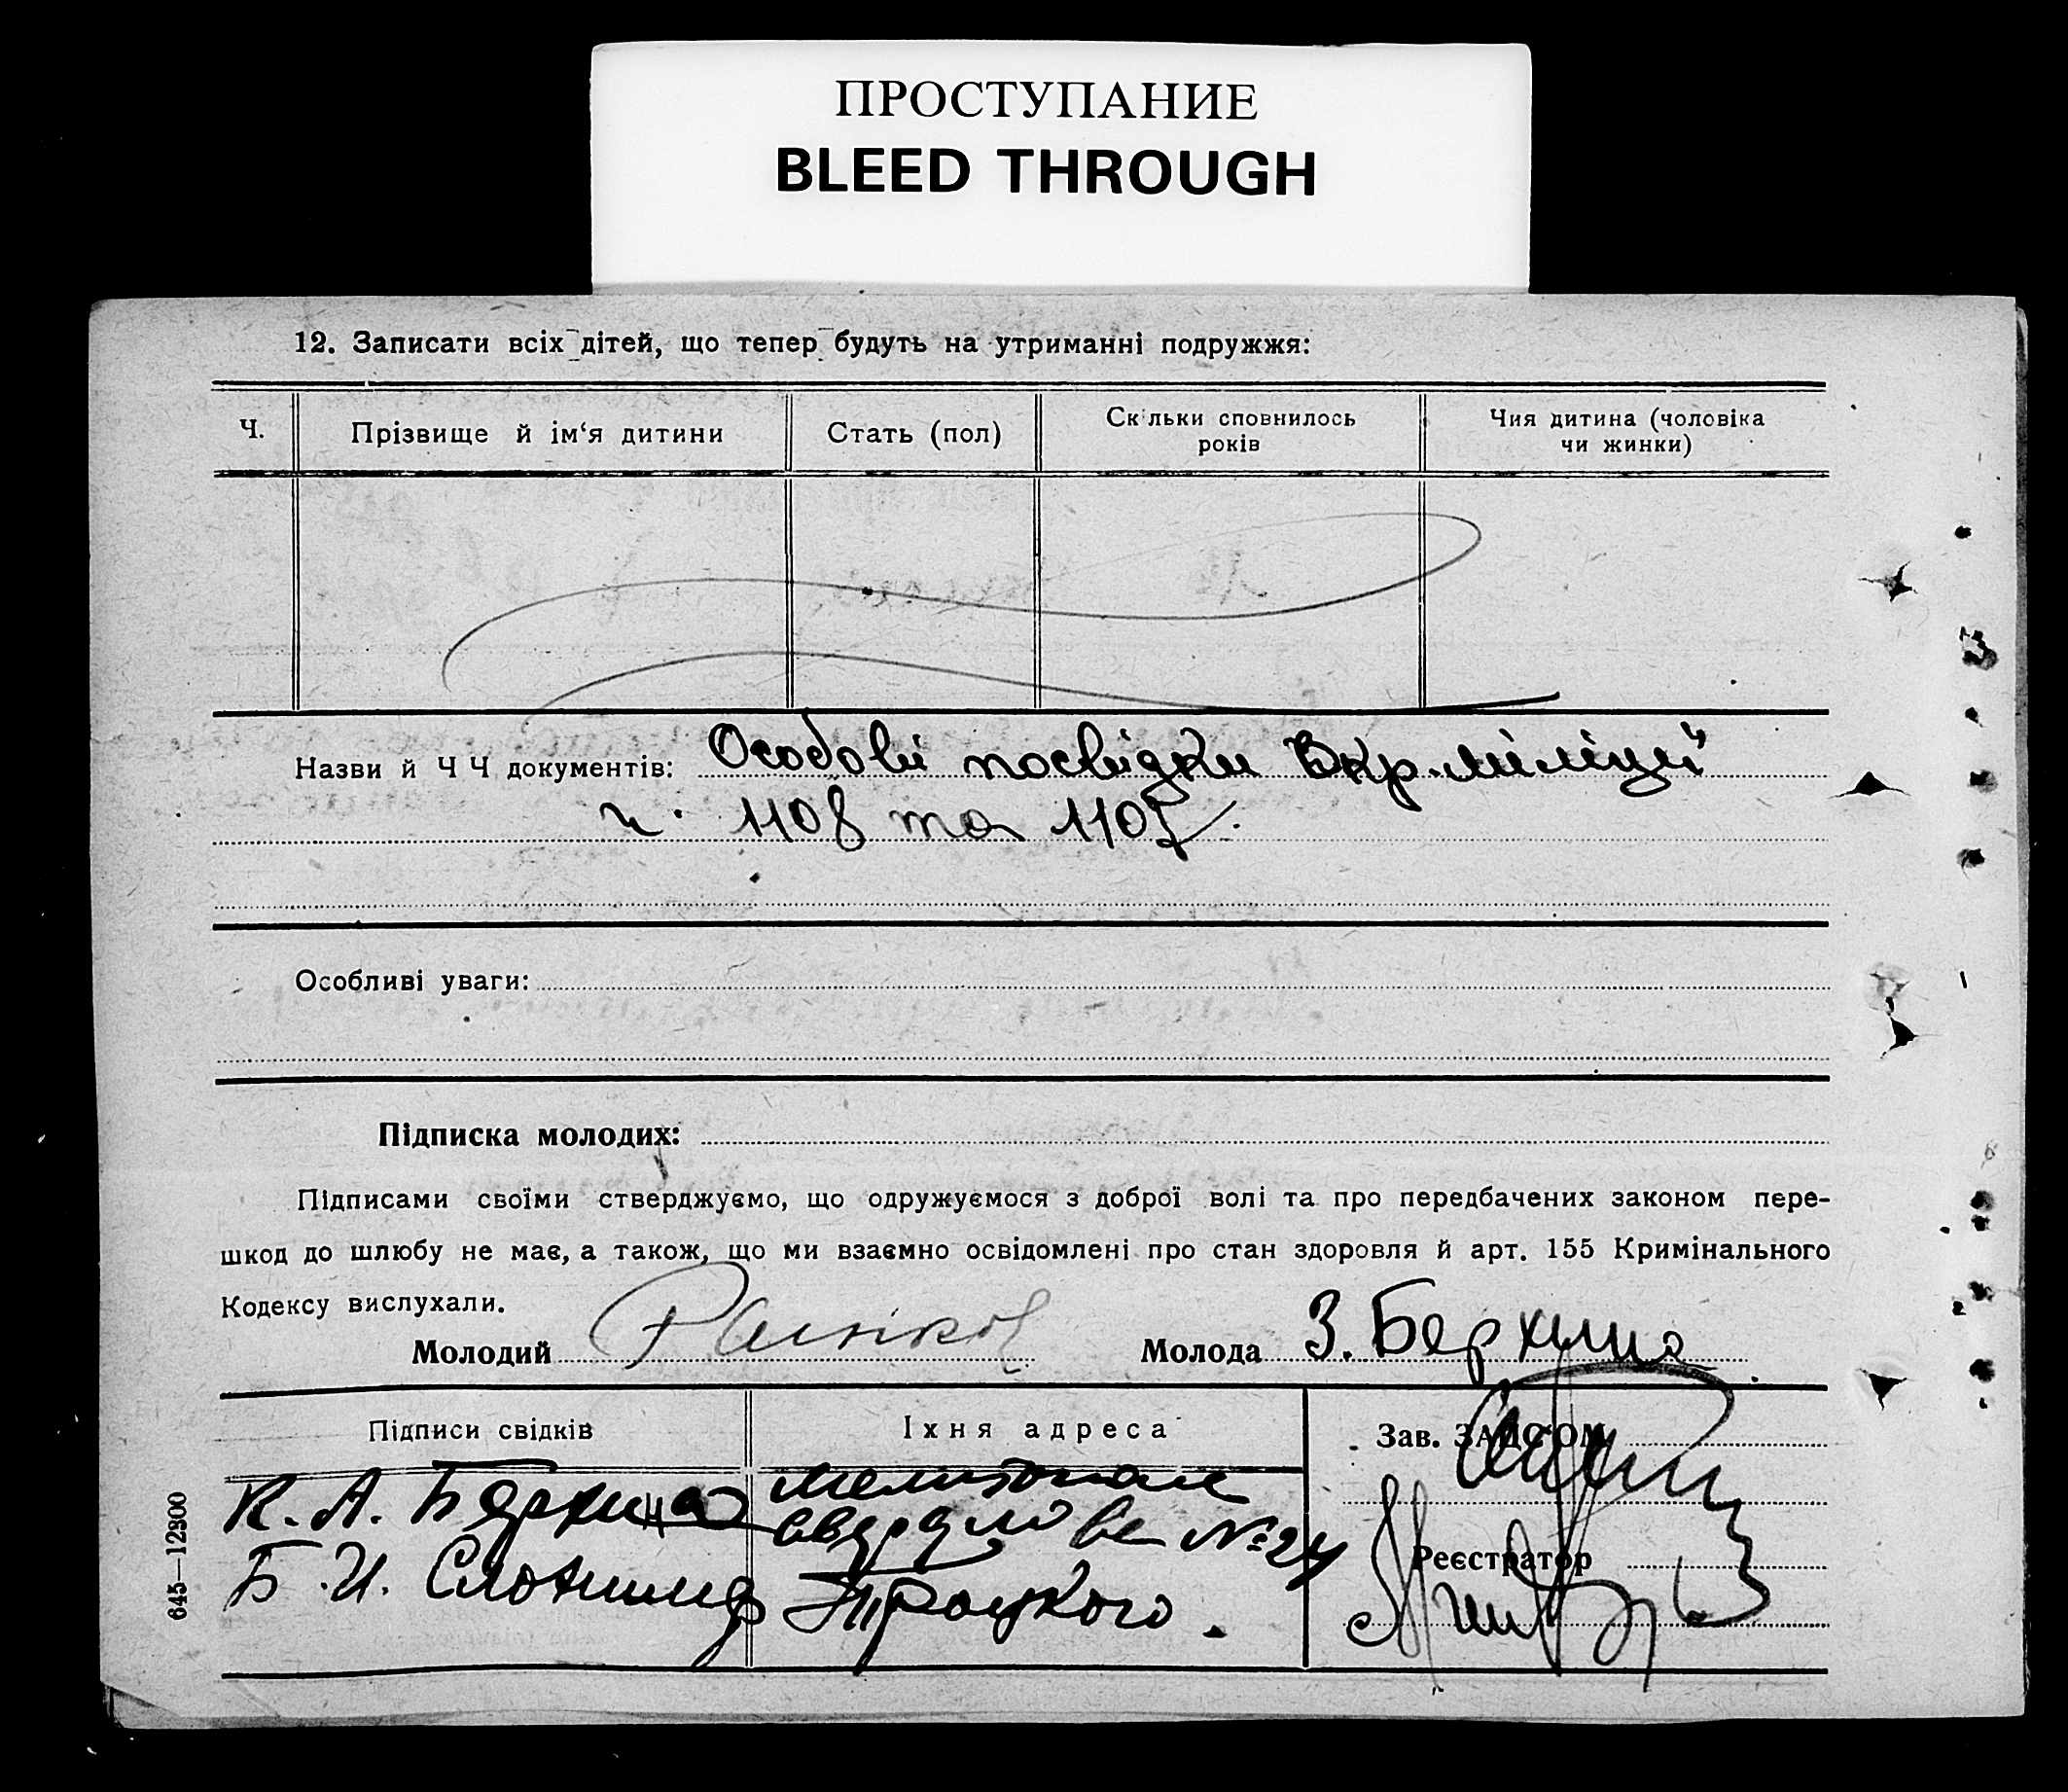 ПРОСТУПАНИЕ
BLEED THROUGH
12. Записати всіх дітей, що тепер будуть на утриманні подружжя:
Ч.
Прізвище й ім‘я дитини
Стать (пол)
Скільки сповнилось
років
Чия дитина (чоловіка
чи жинки)
Назви й Ч Ч документів: Особові посвідки Вкр. міліції
ч. 1108 та 1107.
Особливі уваги:
Підписка молодих:
Підписами своїми стверджуємо, що одружуємося з доброї волі та про передбачених законом пере-
шкод до шлюбу не має, а також, що ми взаємно освідомлені про стан здоровля й арт. 155 Кримінального
Кодексу вислухали.
Молодий
Молода З. Берхина
Підписи свідків
Їхня адреса
Зав. ЗАГСОМ
К. А. Берхина
Мелитополь
№ 24
Реєстратор
Б. И. Слоним
Троцкого.
645—12800